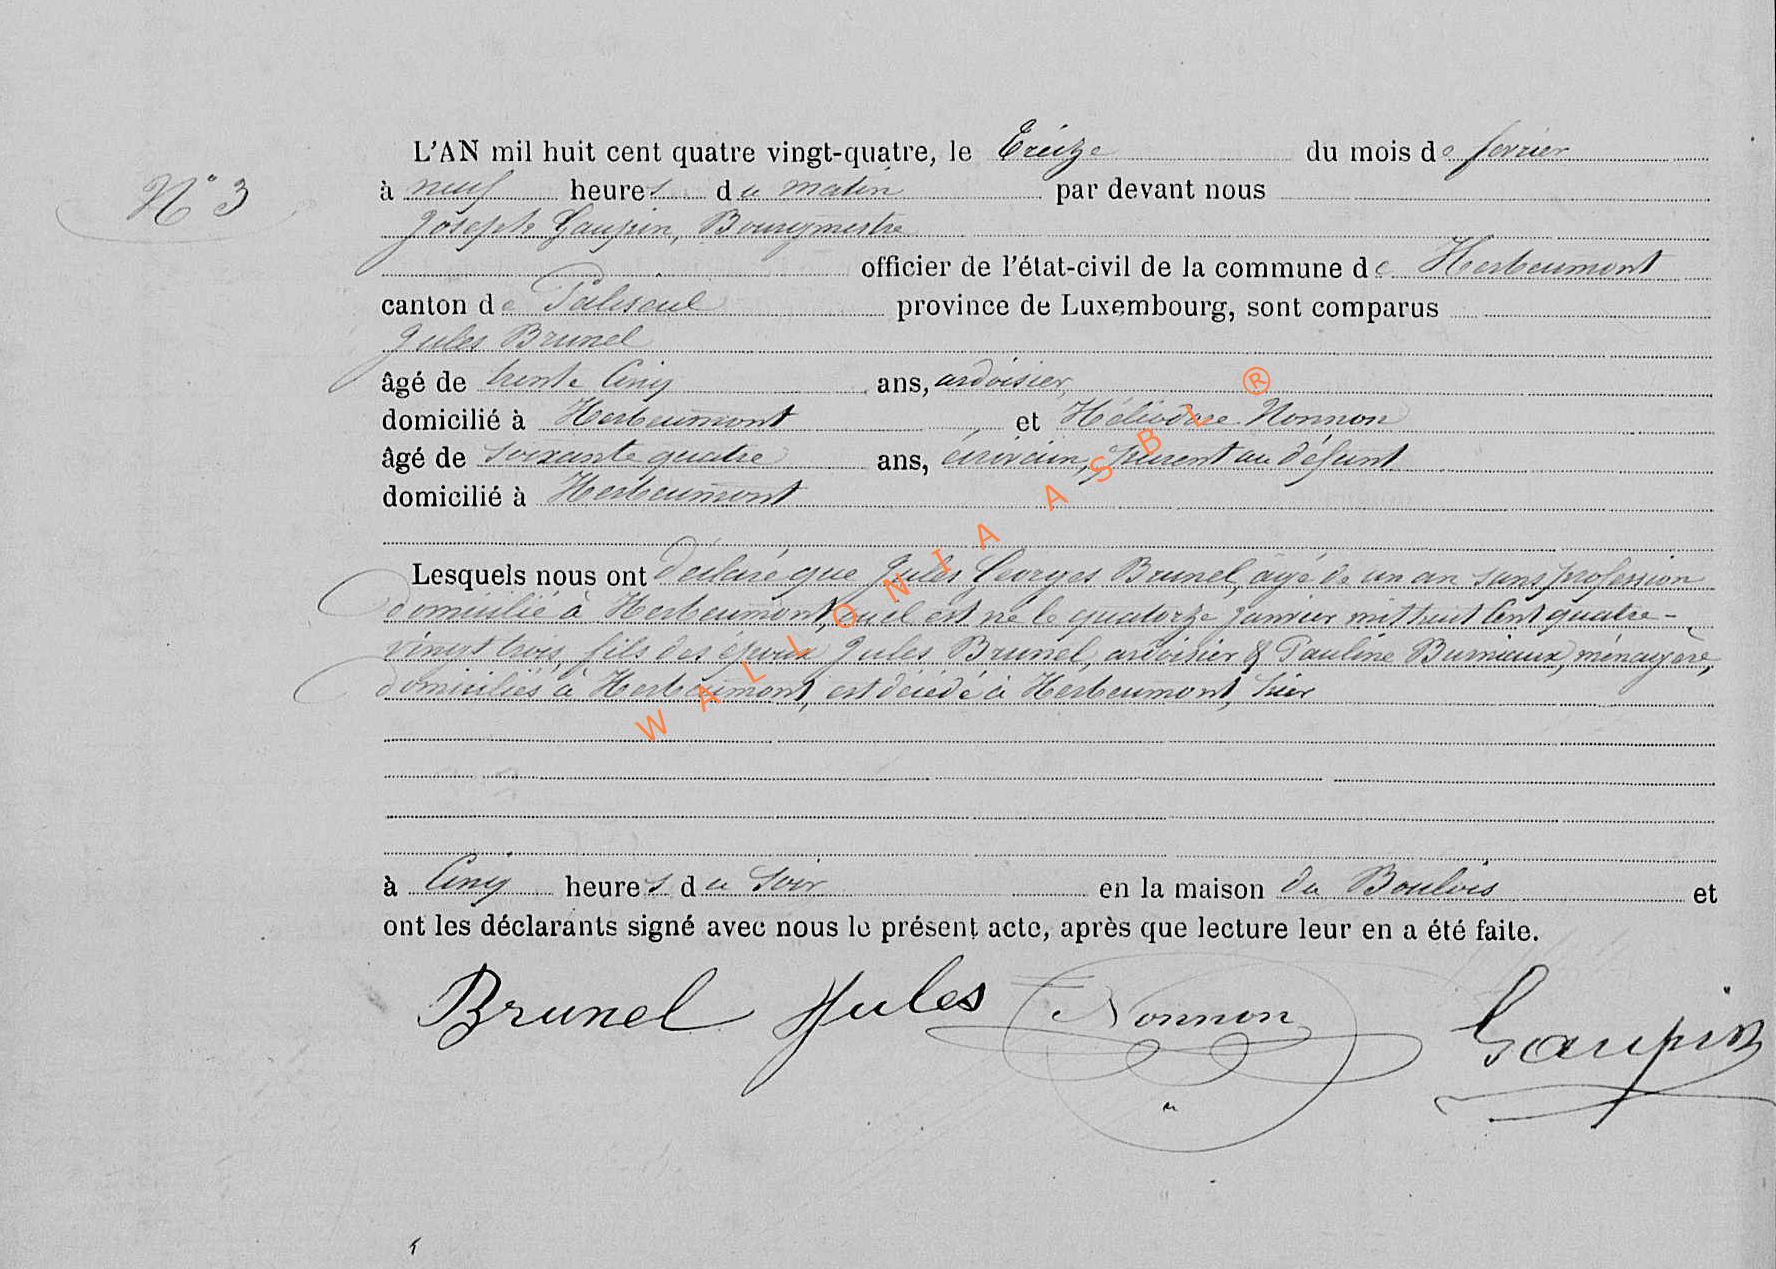 L'AN mil huit cent quatre vingt-quatre, le Treize du mois de février
N° 3
à neuf heures du matin par devant nous
Joseph Gaupin, Bourgmestre
officier de l'état-civil de la commune de Herbeumont
canton de Paliseul province de Luxembourg, sont comparus
Jules Brunel
âgé de trente Cinq ans, ardoisier,
domicilié à Herbeumont et Héliodore Nonnon
âgé de soixante quatre ans, écrivain, parent au défunt
domicilié à Herbeumont
Lesquels nous ont déclaré que Jules Georges Brunel, âgé de un an sans profession
domicilié à Herbeumont, où il est né le quatorze janvier mil huit Cent quatre-
vingt trois, fils des époux Jules Brunel, ardoisier & Pauline Burniaux, ménagère,
domiciliés à Herbeumont, est décédé à Herbeumont, hier
à Cinq heures du soir en la maison du Boulois et
ont les déclarants signé avec nous le présent acte, après que lecture leur en a été faite.
Brunel Jules Nonnon Gaupin
WALLONIA ASBL ®